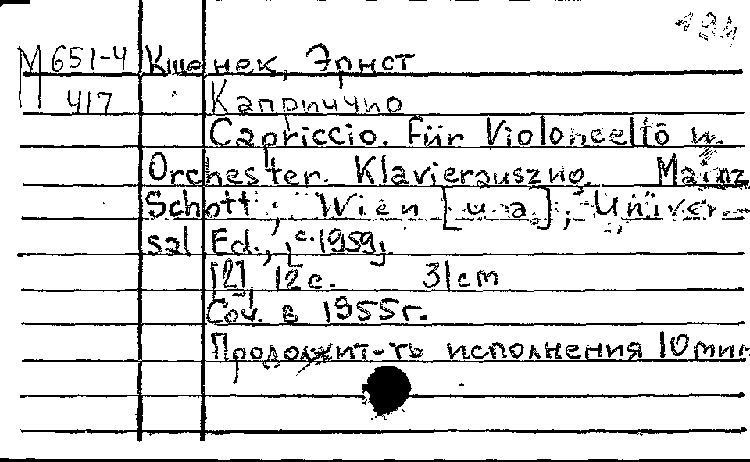 184
М 651-4 Кшенек, Эрнст
417 Каприччио
Capriccio. Für Violoncello u.
Orchester. Klavierauszug. Mainz
Schott; Wien [u.a.], Univer-
sal Ed., [c.1959].
[2], 12 c. 31 cm
Соч. в 1955 г.
Продолжит-ть исполнения 10 мин